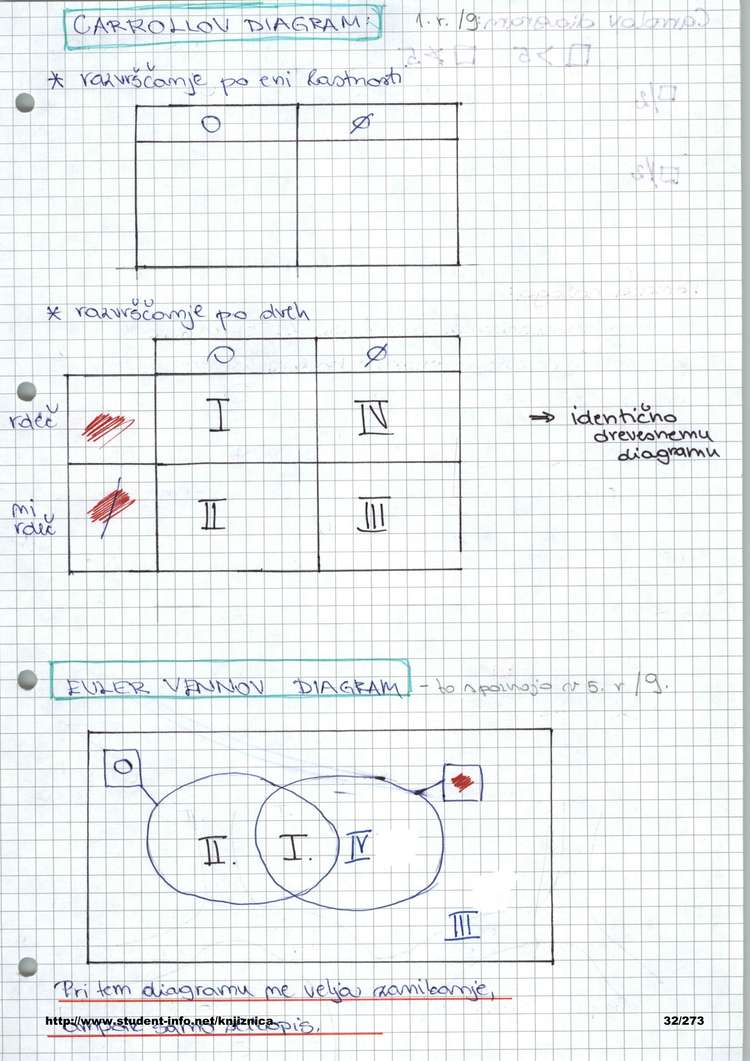 CARROLLOV DIAGRAM: 1. r. /9
* razvrščanje po eni lastnosti
O Ø
* razvrščanje po dveh
O Ø
rdeč I IV
⇒ identično
drevesnemu
diagramu
ni
rdeč II III
EULER VENNOV DIAGRAM - to spoznajo v 5. r /9.
O
II. I. IV
III
Pri tem diagramu ne velja zanikanje,
ampak samo
http://www.student-info.net/knjiznica 32/273